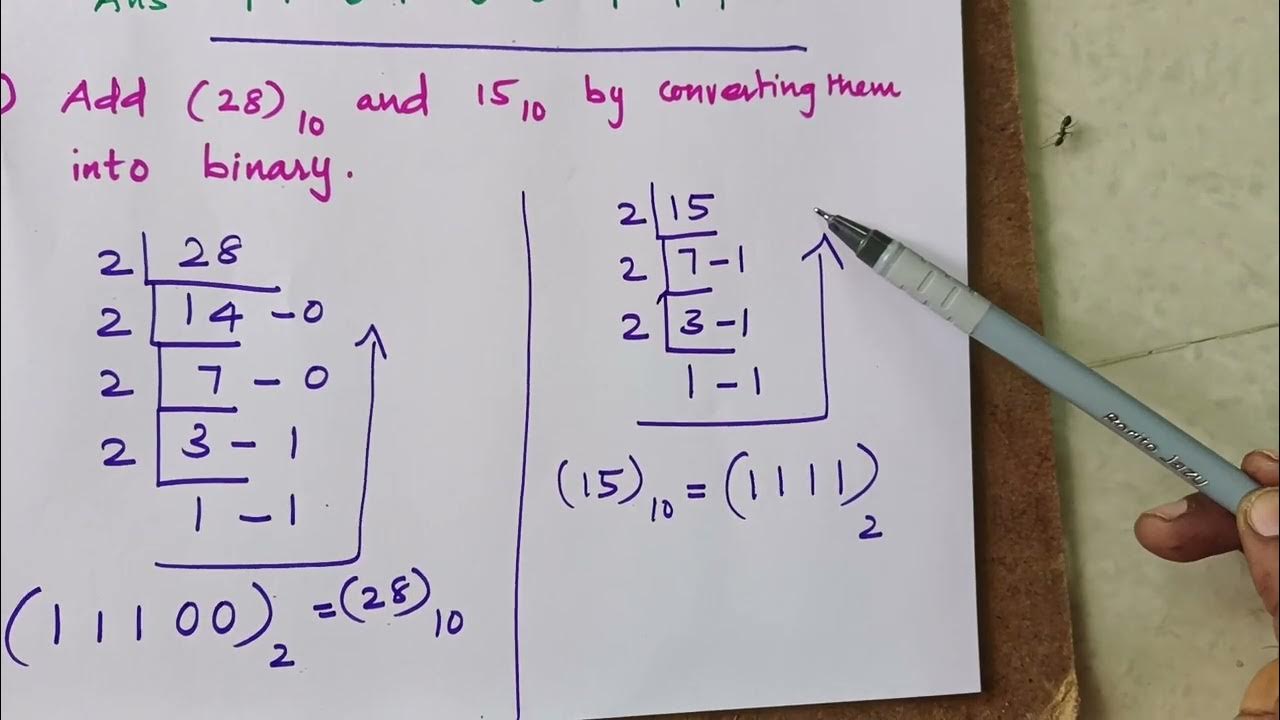 Ans
) Add (28)10 and 1510 by converting them
into binary.
2 28
2 14 - 0
2 7 - 0
2 3 - 1
1 - 1
(11100)2 = (28)10
2 15
2 7 - 1
2 3 - 1
1 - 1
(15)10 = (1111)2